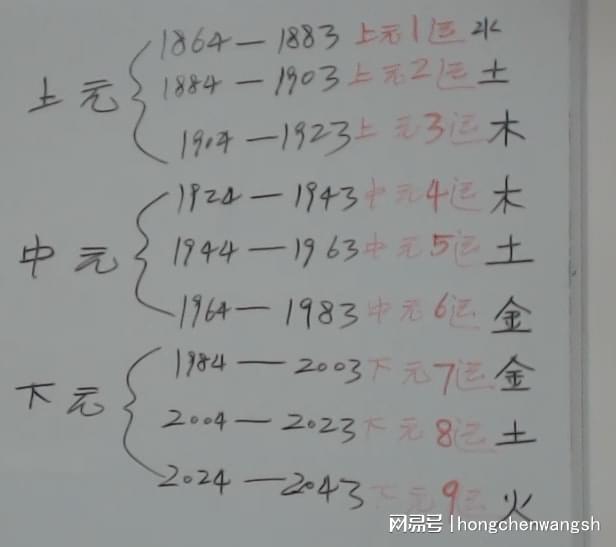 上元
1864—1883上元1运水
1884—1903上元2运土
1904—1923上元3运木
中元
1924—1943中元4运木
1944—1963中元5运土
1964—1983中元6运金
下元
1984—2003下元7运金
2004—2023下元8运土
2024—2043下元9运火
网易号|hongchenwangsh